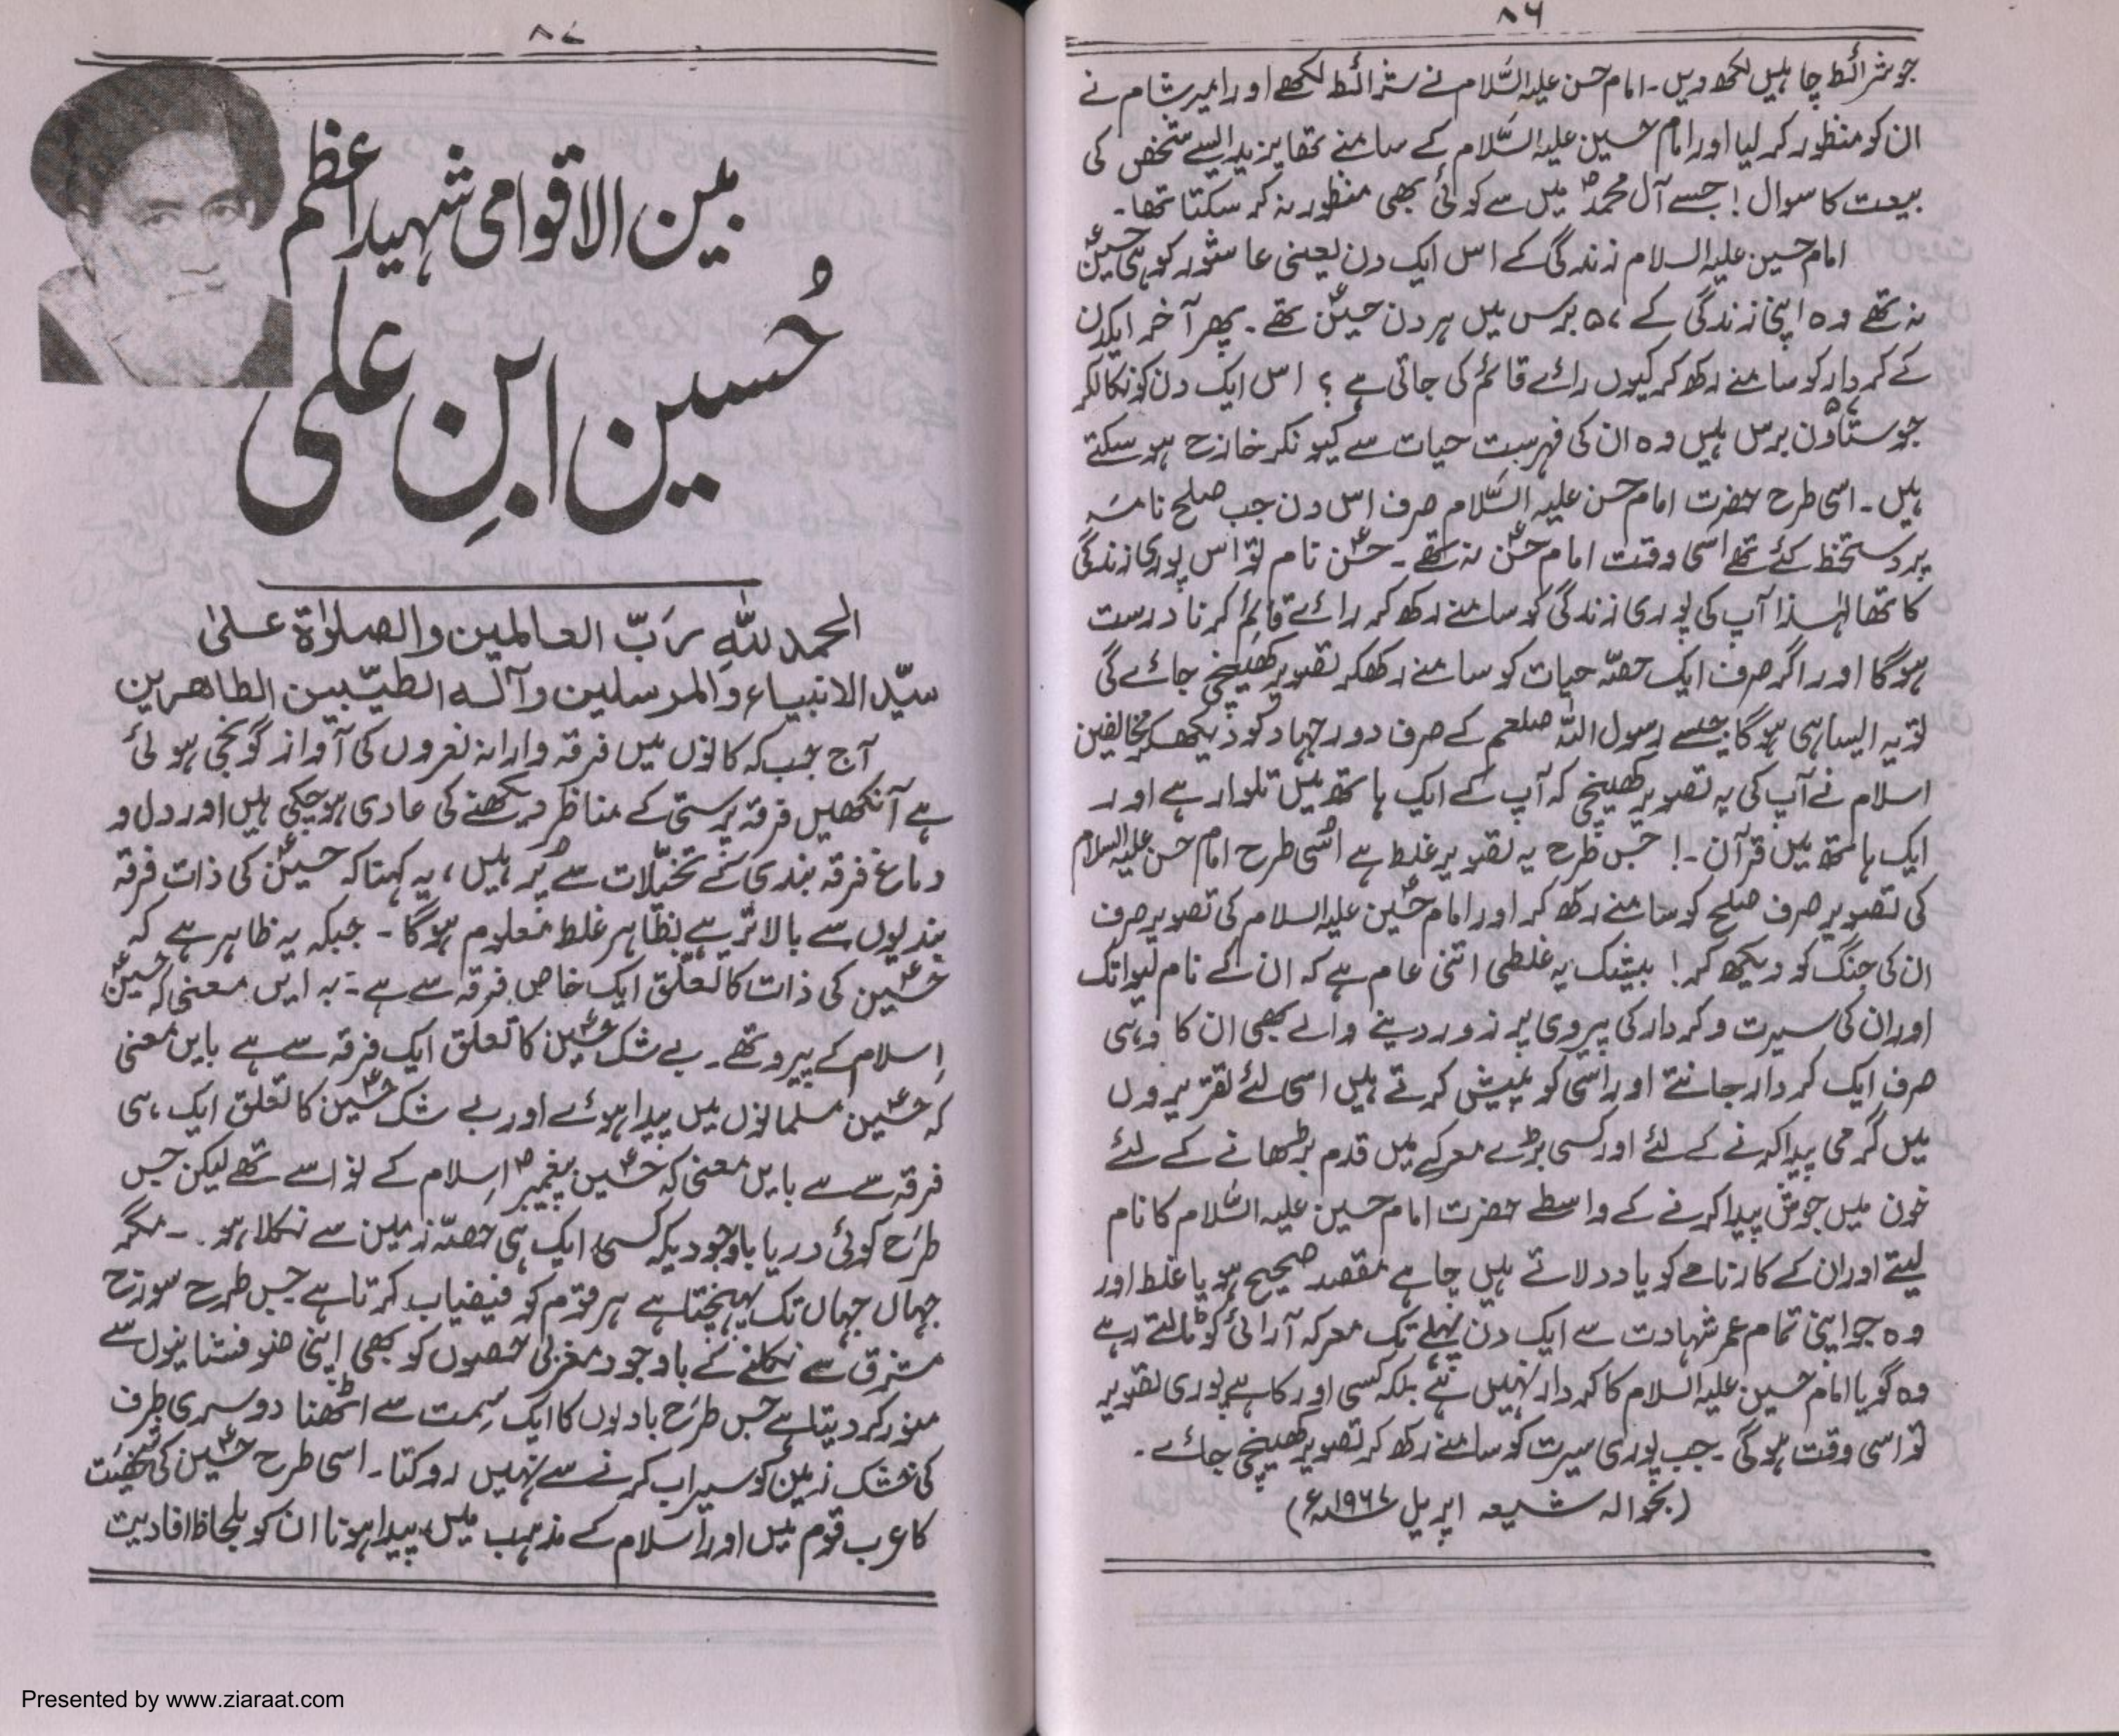 ۸۶
جو شرائط چاہیں لکھ دیں۔ امام حسن علیہ السَّلام نے شرائط لکھے اور امیر شام نے
ان کو منظور کر لیا اور امام حسین علیہ السَّلام کے سامنے تھا یزید ایسے شخص کی
بیعت کا سوال! جسے آل محمدؐ میں سے کوئی بھی منظور نہ کر سکتا تھا۔
امام حسین علیہ السلام زندگی کے اس ایک دن یعنی عاشور کو ہی حسینؑ
نہ تھے وہ اپنی زندگی کے ۵۷ برس میں ہر دن حسینؑ تھے۔ پھر آخر ایکدن
کے کردار کو سامنے رکھ کر کیوں رائے قائم کی جاتی ہے؟ اس ایک دن کو نکالکر
جو ستاون ۵۷ برس ہیں وہ ان کی فہرست حیات سے کیونکر خارج ہو سکتے
ہیں۔ اسی طرح حضرت امام حسن علیہ السَّلام صرف اس دن جب صلح نامہ
پر دستخط کئے تھے اسی وقت امام حسنؑ نہ تھے۔ حسنؑ نام تو اس پوری زندگی
کا تھا لہٰذا آپ کی پوری زندگی کو سامنے رکھ کر رائے قائم کرنا درست
ہوگا اور اگر صرف ایک حصّہ حیات کو سامنے رکھکر تصویر کھینچی جائے گی
تو یہ ایسا ہی ہوگا جیسے رسول اللہ صلعم کے صرف دور جہاد کو دیکھکر مخالفین
اسلام نے آپ کی یہ تصویر کھینچی کہ آپ کے ایک ہاتھ میں تلوار ہے اور
ایک ہاتھ میں قرآن۔! جس طرح یہ تصویر غلط ہے اُسی طرح امام حسن علیہ السلام
کی تصویر صرف صلح کو سامنے رکھ کر اور امام حسینؑ علیہ السلام کی تصویر صرف
ان کی جنگ کو دیکھ کر! بیشک یہ غلطی اتنی عام ہے کہ ان کے نام لیوا تک
اور ان کی سیرت و کردار کی پیروی پر زور دینے والے بھی ان کا وہی
صرف ایک کردار جانتے اور اسی کو پیش کرتے ہیں اسی لئے تقریروں
میں گرمی پیدا کرنے کے لئے اور کسی بڑے معرکے میں قدم بڑھانے کے لئے
خون میں جوش پیدا کرنے کے واسطے حضرت امام حسین علیہ السَّلام کا نام
لیتے اور ان کے کارنامے کو یاد دلاتے ہیں چاہے مقصد صحیح ہو یا غلط اور
وہ جو اپنی تمام عمر شہادت سے ایک دن پہلے تک معرکہ آرائی کو ٹالتے رہے
وہ گویا امام حسین علیہ السلام کا کردار نہیں ہے بلکہ کسی اور کا ہے پوری تصویر
تو اسی وقت ہوگی۔ جب پوری سیرت کو سامنے رکھ کر تصویر کھینچی جائے۔
(بحوالہ شیعہ اپریل ۱۹۶۷ء)
۸۷
بین الاقوامی شہید اعظم
حُسین ابنِ علی
الحمد للّٰہِ رَبّ العالمین والصلوٰۃ علیٰ
سیّد الانبیاء والمرسلین وآلہ الطیّبین الطاھرین
آج جب کہ کانوں میں فرقہ وارانہ نعروں کی آواز گونجی ہوئی
ہے آنکھیں فرقہ پرستی کے مناظر دیکھنے کی عادی ہو چکی ہیں اور دل و
دماغ فرقہ بندی کے تخیّلات سے پُر ہیں، یہ کہنا کہ حسینؑ کی ذات فرقہ
بندیوں سے بالاتر ہے بظاہر غلط معلوم ہوگا۔ جبکہ یہ ظاہر ہے کہ
حسینؑ کی ذات کا تعلّق ایک خاص فرقہ سے ہے۔ بہ ایں معنی کہ حسینؑ
اِسلام کے پیرو تھے۔ بے شک حسینؑ کا تعلق ایک فرقہ سے ہے بایں معنی
کہ حسینؑ مسلمانوں میں پیدا ہوئے اور بے شک حسینؑ کا تعلق ایک ہی
فرقہ سے ہے بایں معنی کہ حسینؑ پیغمبرؐ اِسلام کے نواسے تھے لیکن جس
طرح کوئی دریا باوجودیکہ کسی ایک ہی حصّہ زمین سے نکلا ہو۔ مگر
جہاں جہاں تک پہنچتا ہے ہر قوم کو فیضیاب کرتا ہے جس طرح سورج
مشرق سے نکلنے کے باوجود مغربی حصوں کو بھی اپنی ضوفشانیوں سے
منور کر دیتا ہے جس طرح بادلوں کا ایک سِمت سے اٹھنا دوسری طرف
کی خشک زمین کو سیراب کرنے سے نہیں روکتا۔ اسی طرح حسینؑ کی شخصیت
کا عرب قوم میں اور اسلام کے مذہب میں پیدا ہونا ان کو بلحاظ افادیت
Presented by www.ziaraat.com